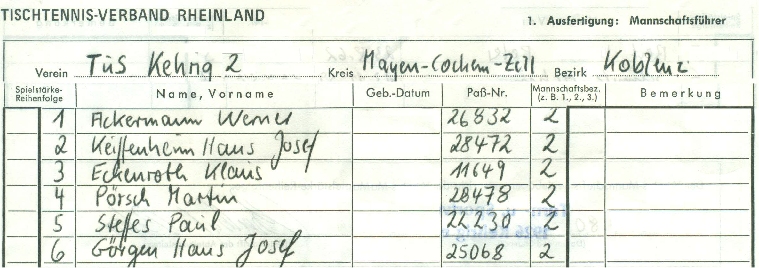 TISCHTENNIS-VERBAND RHEINLAND 1. Ausfertigung: Mannschaftsführer
Verein TuS Kehrig 2 Kreis Mayen-Cochem-Zell Bezirk Koblenz
Spielstärke-Reihenfolge Name, Vorname Geb.-Datum Paß-Nr. Mannschaftsbez. (z. B. 1., 2., 3.) Bemerkung
1 Ackermann Werner 26832 2
2 Keiffenheim Hans Josef 28472 2
3 Eckenroth Klaus 11649 2
4 Pörsch Martin 28478 2
5 Steffes Paul 22230 2
6 Görgen Hans Josef 25068 2